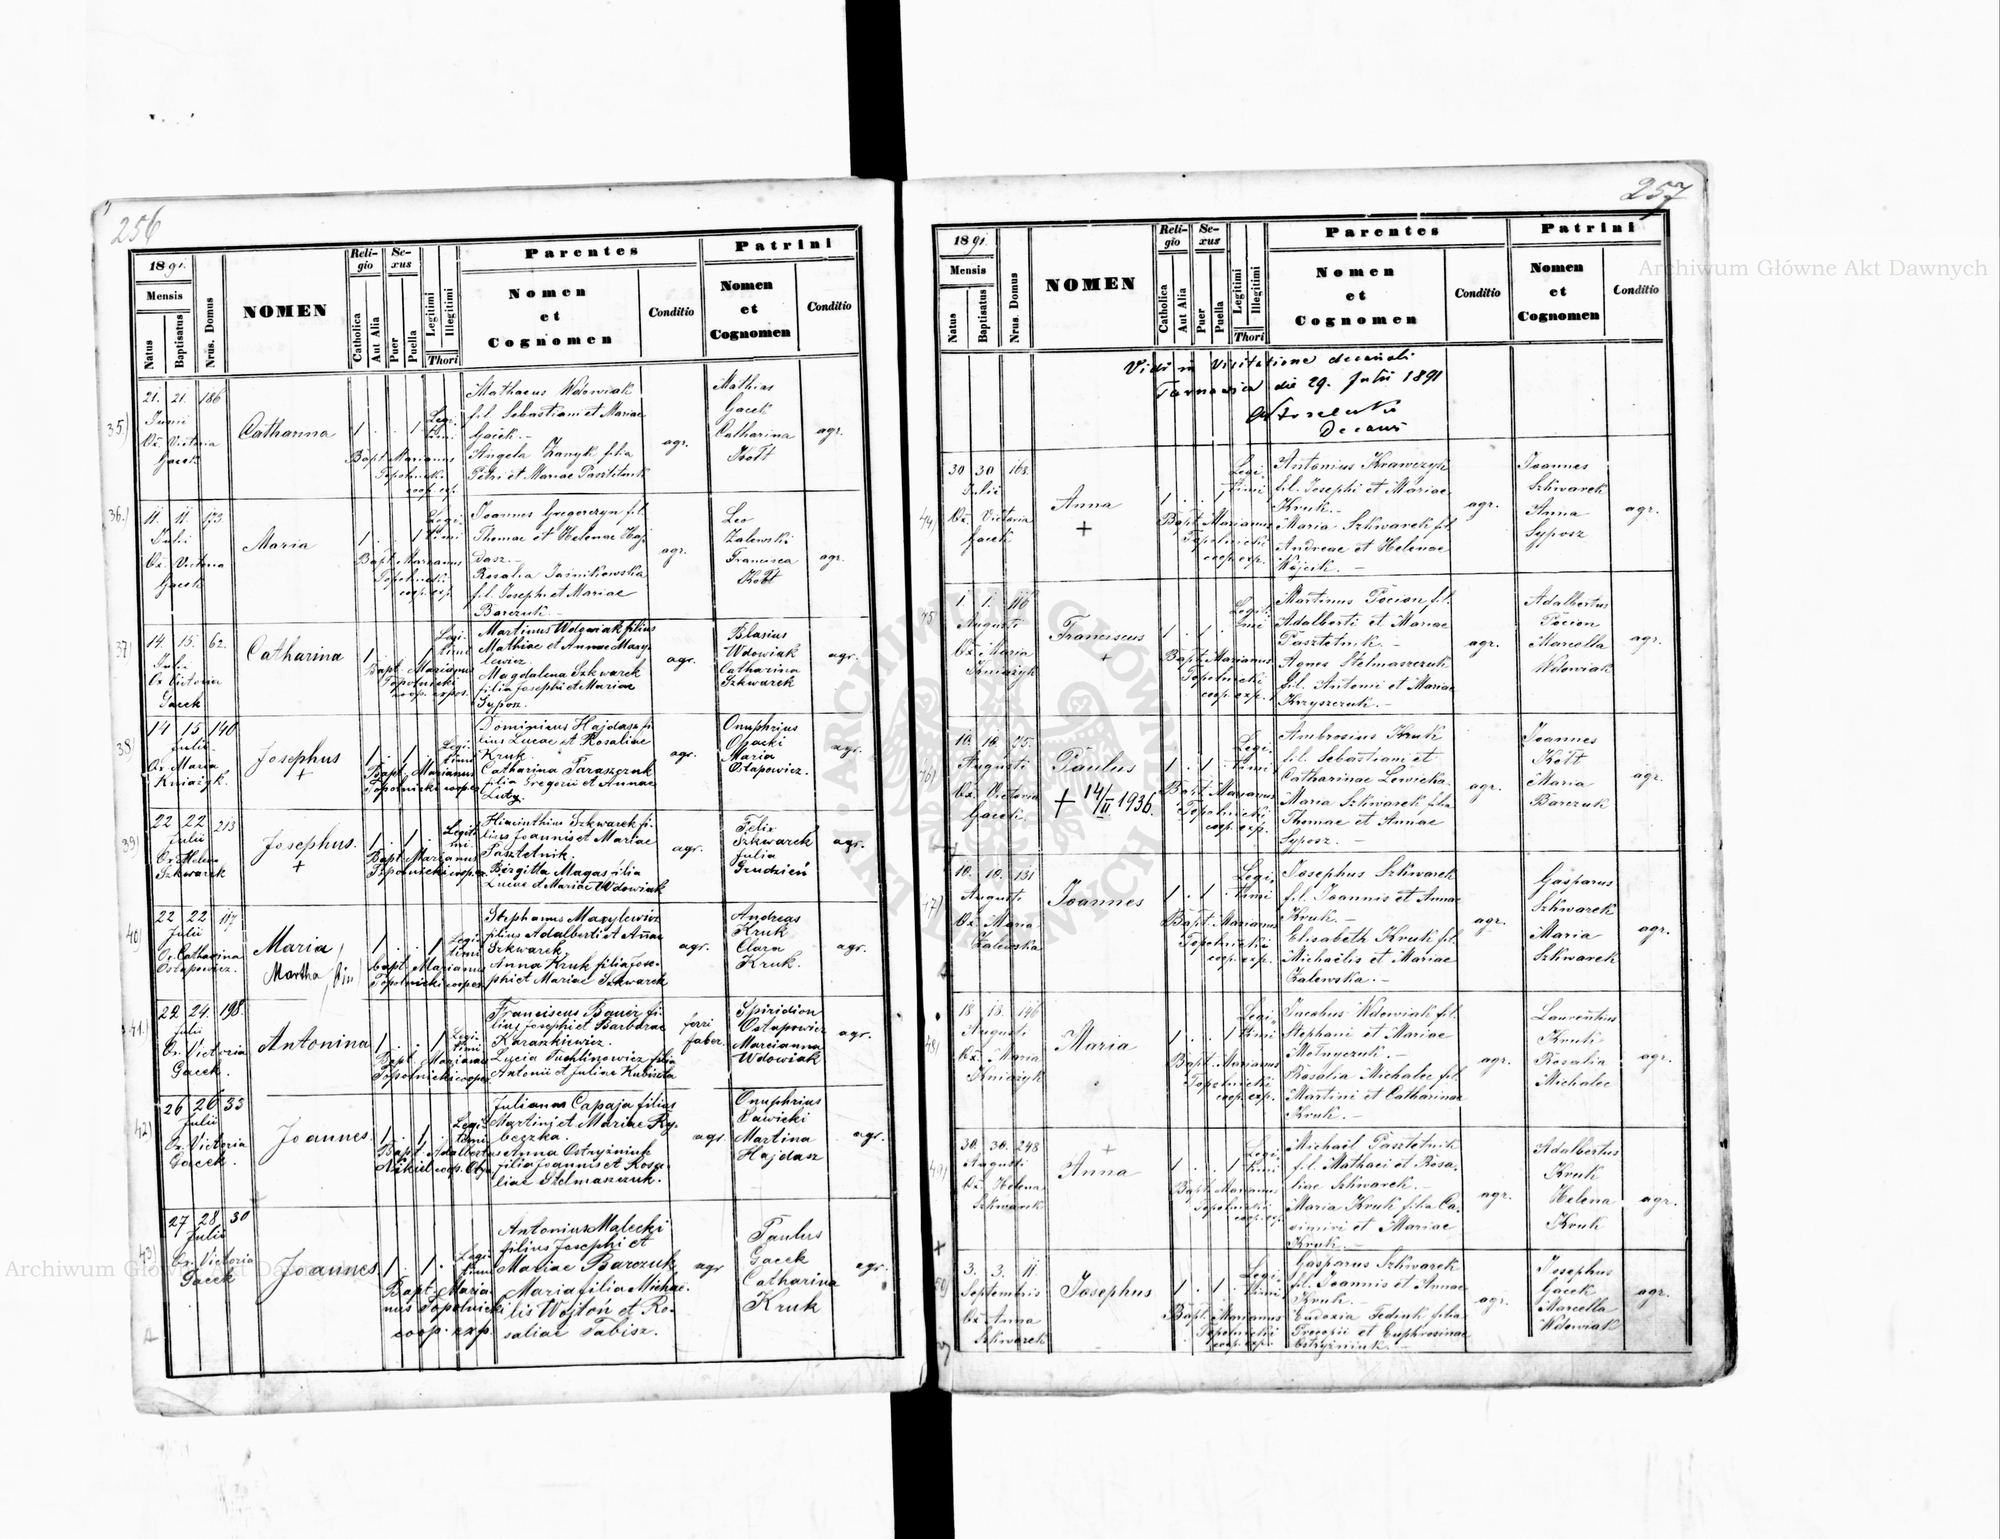 256
1891.
Mensis
Natus
Baptisatus
Nrus. Domus
NOMEN
Religio
Catholica
Aut Alia
Sexus
Puer
Puella
Legitimi
Illegitimi
Thori
Parentes
Nomen
et
Cognomen
Conditio
Patrini
Nomen
et
Cognomen
Conditio
35)
21. 21. 186
Junii
Ob. Victoria
Gacek
Catharina
1 . . 1
Legi-
timi
Bapt. Marianus
Topolnicki
coop. exp.
Mathaeus Wdowiak
fil. Sebastiani et Mariae
Gacek.-
Angela Zanyk filia
Petri et Mariae Pasztetnik
agr.
Mathias
Gacek
Catharina
Kott
agr.
36.)
11. 11. 173
Julii
Ob. Victoria
Gacek
Maria
1 . . 1
Legi-
timi
Bapt. Marianus
Topolnicki
coop. exp.
Joannes Gregorczyn fil.
Thomae et Helenae Haj
dasz.-
Rosalia Jasnikowska
fil. Josephi et Mariae
Barczuk.-
agr.
Leo
Zalewski
Francisca
Kott
agr.
37)
14. 15. 62.
Juli
Ob. Victoria
Gacek
Catharina
1 . . 1
Legi-
timi
Bapt. Marianus
Topolnicki
coop. expos.
Martinus Wdowiak filius
Mathiae et Annae Mazy-
lewicz.
Magdalena Szkwarek
filia Josephi et Mariae
Syposz.
agr.
Blasius
Wdowiak
Catharina
Szkwarek
agr.
38)
14 15 140
Julii
Ob. Maria
Kniażyk.
Josephus
+
1 . 1 .
Legi-
timi
Bapt. Marianus
Topolnicki cooper.
Dominicus Hajdasz fi-
lius Lucae et Rosaliae
Kruk
Catharina Paraszczuk
filia Gregorii et Annae
Luty.
agr.
Onuphrius
Opacki
Maria
Ostapowicz.
agr.
39)
22 22 213
Julii
Ob. Helena
Szkwarek
Josephus.
+
1 . 1 .
Legit-
mi.
Bapt. Marianus
Topolnicki cooper.
Hiacinthius Szkwarek fi-
lius Joannis et Mariae
Pasztetnik.
Birgitta Magas filia
Lucae et Mariae Wdowiak
agr.
Felix
Szkwarek
Julia
Grudzień
agr.
40)
22 22 117
Julii
Ob. Catharina
Ostapowicz.
Maria
Martha (bin)
1 . . 1
Legi-
timi
bapt. Marianus
Topolnicki cooper.
Stephanus Mazylewicz
filius Adalberti et Annae
Szkwarek
Anna Kruk filia Jose-
phi et Mariae Szkwarek
agr.
Andreas
Kruk
Clara
Kruk.
agr.
41.)
22. 24. 198.
Julii
Ob. Victoria
Gacek.
Antonina
1 . . 1
Legi-
timi
Bapt. Marianus
Topolnicki cooper.
Franciscus Bauer fi-
lius Josephi et Barbarae
Karaskiewicz.
Lucia Tuchlinowicz filia
Antonii et Julinae Kubiszta
ferri
faber.
Spiridion
Ostapowicz
Marcianna
Wdowiak
agr.
42)
26 26 33
Julii
Ob. Victoria
Gacek.
Joannes
1 . 1 .
Legi-
timi
Bapt. Adalbertus
Nikiel coop. Oby.
Julianus Capaja filius
Martini et Mariae Ry-
beczka.
Anna Ostryżniuk
filia Joannis et Rosa-
liae Stelmaszczuk.
agr.
Onuphrius
Sawicki
Martina
Hajdasz
agr.
43)
27 28 30
Julii
Ob. Victoria
Gacek
Joannes
1 . 1 .
Legi-
timi
Bapt. Maria-
nus Topolnicki
coop. exp.
Antonius Malecki
filius Josephi et
Mariae Barczuk
Maria filia Michae-
lis Wojton et Ro-
saliae Tabisz.
agr
Paulus
Gacek
Catharina
Kruk
agr.
257
1891.
Mensis
Natus
Baptisatus
Nrus. Domus
NOMEN
Religio
Catholica
Aut Alia
Sexus
Puer
Puella
Legitimi
Illegitimi
Thori
Parentes
Nomen
et
Cognomen
Conditio
Patrini
Nomen
et
Cognomen
Conditio
Vidi in Visitatione decanali
Tarnowica die 29. Julii 1891
Decanus
44)
30 30 168.
Julii
Ob. Victoria
Gacek
Anna
+
1 . . 1
Legi-
timi
Bapt. Marianus
Topolnicki
coop. exp.
Antonius Krawczyk
fil. Josephi et Mariae
Kruk.-
Maria Szkwarek fil.
Andreae et Helenae
Wójcik.-
agr.
Joannes
Szkwarek
Anna
Syposz
agr.
45)
1. 1. 116
Augusti
Ob. Maria
Kniażyk
Franciscus
+
1 . 1 .
Legit-
imi
Bapt. Marianus
Topolnicki
coop. exp.
Martinus Pocion fil.
Adalberti et Mariae
Pasztetnik.-
Agnes Stelmaszczuk
fil. Antonii et Mariae
Krzyszczuk.-
agr.
Adalbertus
Pocion
Marcella
Wdowiak
agr.
46)
10. 10. 75.
Augusti
Ob. Victoria
Gacek.
Paulus
+ 14/II 1936.
1 . 1 .
Legi-
timi
Bapt. Marianus
Topolnicki
coop. exp.
Ambrosius Kruk
fil. Sebastiani et
Catharinae Lewicka.
Maria Szkwarek filia
Thomae et Annae
Syposz.-
agr.
Joannes
Kott
Maria
Barczuk
agr.
47)
10. 10. 131
Augusti
Ob. Maria
Zalewska
Joannes
1 . 1 .
Legi-
timi
Bapt. Marianus
Topolnicki
coop. exp.
Josephus Szkwarek
fil. Joannis et Annae
Kruk.-
Elisabeth Kruk fil.
Michaëlis et Mariae
Zalewska.-
agr.
Gasparus
Szkwarek
Maria
Szkwarek
agr.
48)
18. 18. 146
Augusti
Ob. Maria
Kniażyk
Maria
1 . . 1
Legi-
timi
Bapt. Marianus
Topolnicki
coop. exp.
Jacobus Wdowiak fil.
Stephani et Mariae
Mołnyczuk.-
Rosalia Michalec fil.
Martini et Catharinae
Kruk.-
agr.
Laurentius
Kruk
Rosalia
Michalec
agr.
49)
30. 30. 248
Augusti
Ob. Helena
Szkwarek
+
Anna
1 . . 1
Legi-
timi
Bapt. Marianus
Topolnicki
coop. exp.
Michaël Pasztetnik
fil. Mathaei et Rosa-
liae Szkwarek.-
Maria Kruk filia Ca-
simiri et Mariae
Kruk.-
agr.
Adalbertus
Kruk
Helena
Kruk
agr.
50)
3. 3. 11.
Septembris
Ob. Anna
Szkwarek
Josephus
1 . 1 .
Legi-
timi
Bapt. Marianus
Topolnicki
coop. exp.
Gasparus Szkwarek
fil. Joannis et Annae
Kruk.-
Eudoxia Fediuk filia
Procopii et Euphrosinae
Ostryżniuk.-
agr.
Josephus
Gacek
Marcella
Wdowiak
agr.
Archiwum Główne Akt Dawnych
Archiwum Główne Akt Dawnych
ARCHIWUM GŁÓWNE AKT DAWNYCH